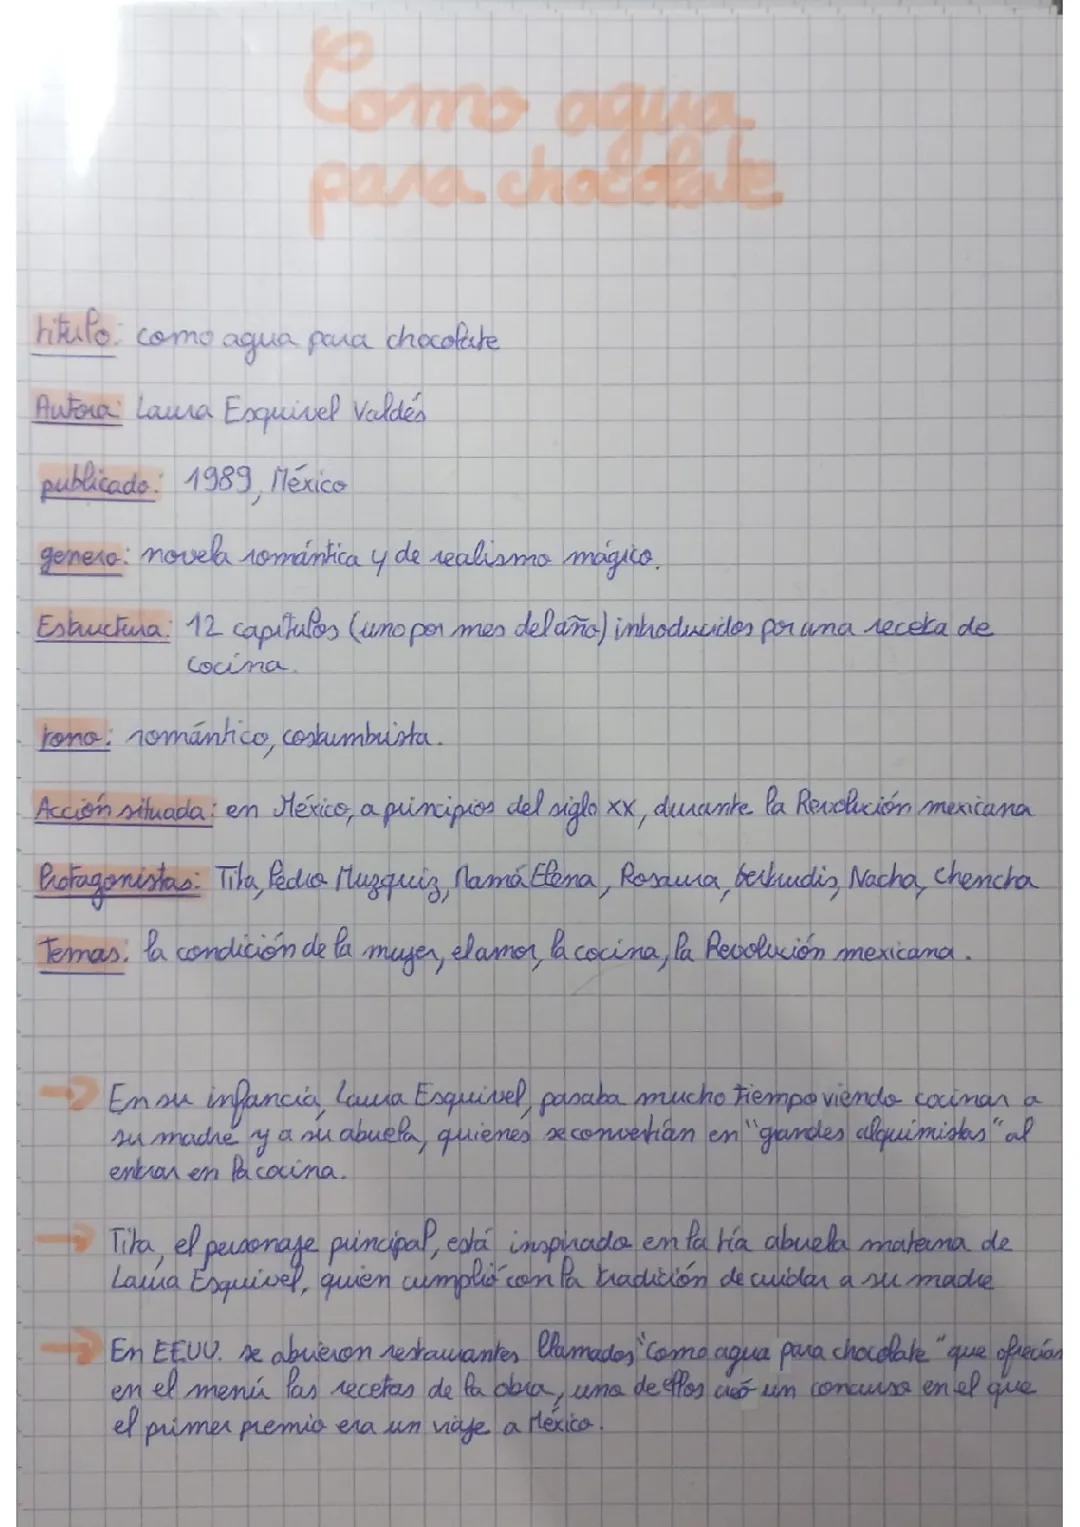 Como agua
para chocolate
título: como agua para chocolate
Autora: Laura Esquivel Valdés
publicado: 1989, México
genero: novela romántica y de realismo mágico.
Estructura: 12 capítulos (uno por mes del año) introducidos por una receta de
cocina.
tono: romántico, costumbrista.
Acción situada: en México, a principios del siglo XX, durante la Revolución mexicana
Protagonistas: Tita, Pedro Muzquiz, Mamá Elena, Rosaura, Gertrudis, Nacha, Chencha
Temas: la condición de la mujer, el amor, la cocina, la Revolución mexicana.
→ En su infancia, Laura Esquivel, pasaba mucho tiempo viendo cocinar a
su madre y a su abuela, quienes se convertían en "grandes alquimistas" al
entrar en la cocina.
→ Tita, el personaje principal, está inspirado en la tía abuela materna de
Laura Esquivel, quien cumplió con la tradición de cuidar a su madre
→ En EEUU. se abrieron restaurantes llamados "Como agua para chocolate" que ofrecían
en el menú las recetas de la obra, uno de ellos creó un concurso en el que
el primer premio era un viaje a México.